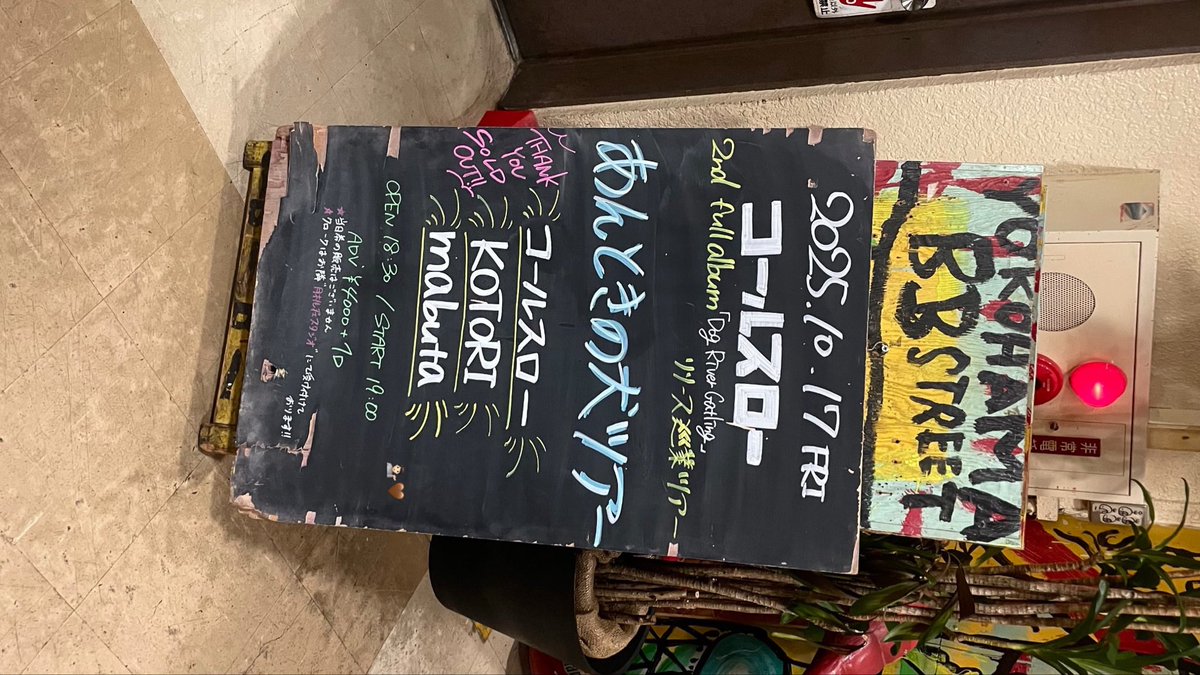 YOKOHAMA
BB STREET
2025.10.17 FRI
コールスロー
2nd full album「Dog River Gatling」
リリース巡業ツアー
あんときの犬ツアー
THANK
YOU
SOLD
OUT!!
コールスロー
KOTORI
mabuta
OPEN 18:30 / START 19:00
ADV ¥4000+1D
★当日券の販売はございません
★クロークはお隣"月桃荘スタジオ"にて受け付けて
おります!!
非常電話